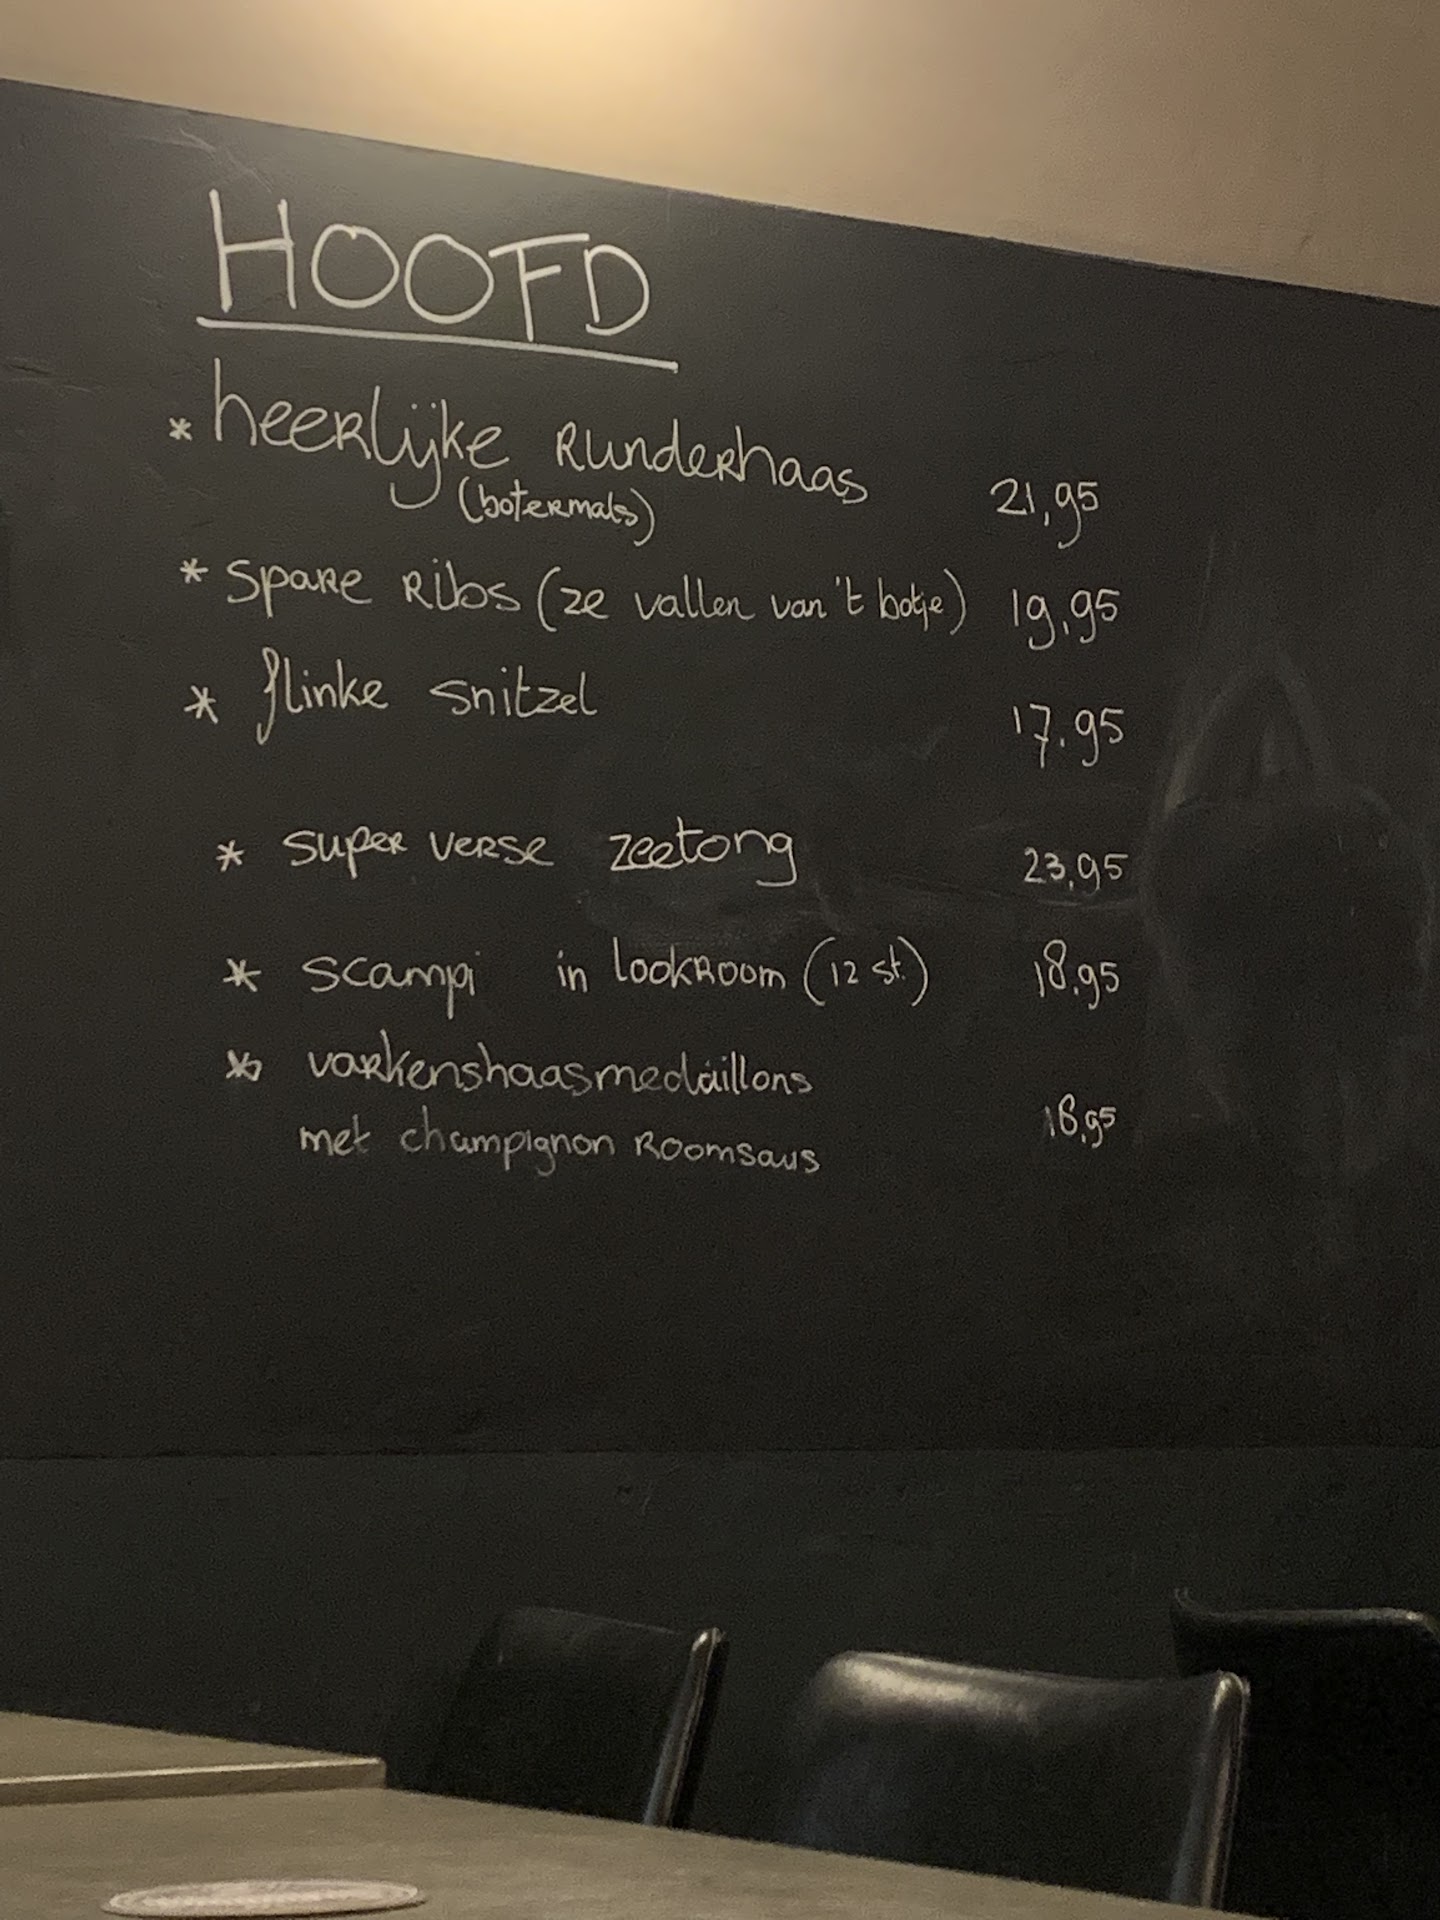 HOOFD
* heerlijke Runderhaas 21,95
(botermals)
* Spare Ribs (ze vallen van 't botje) 19,95
* flinke snitzel 17.95
* super verse zeetong 23,95
* scampi in lookroom (12 st.) 18,95
* varkenshaasmedaillons
met champignon Roomsaus 18,95